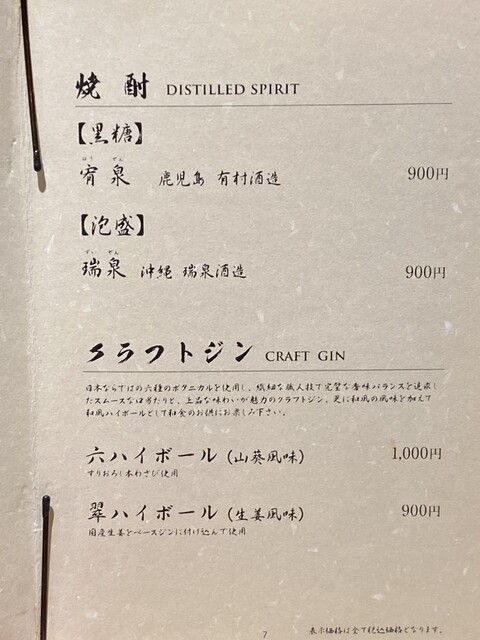 焼酎 DISTILLED SPIRIT
【黒糖】
宥泉 鹿児島 有村酒造 900円
【泡盛】
ずいせん
瑞泉 沖縄 瑞泉酒造 900円
クラフトジン CRAFT GIN
日本ならではの六種のボタニカルを使用し、繊細な職人技で完璧な香味バランスを追求し
たスムースな口当たりと、上品な味わいが魅力のクラフトジン。更に和風の風味を加えて
和風ハイボールとして和食のお供にお楽しみ下さい。
六ハイボール(山葵風味) 1,000円
すりおろし本わさび使用
翠ハイボール(生姜風味) 900円
国産生姜をベースジンに付け込んで使用
表示価格は全て税込価格となります。
7